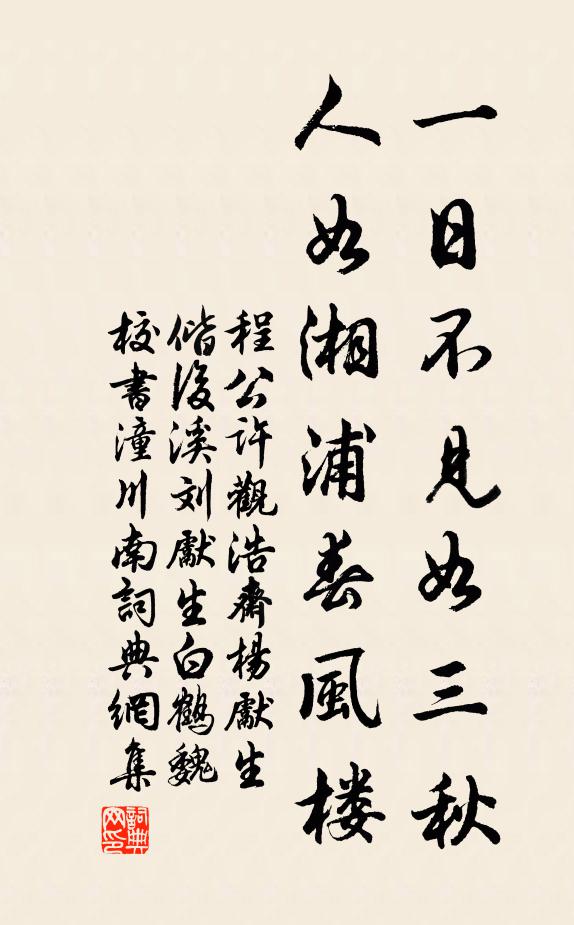 一日不見如三秋
人如湘浦春風楼
程公许觀浩齋楊獻生
偕後溪刘獻生白鶴魏
校書潼川南詞典網集
詞典网印